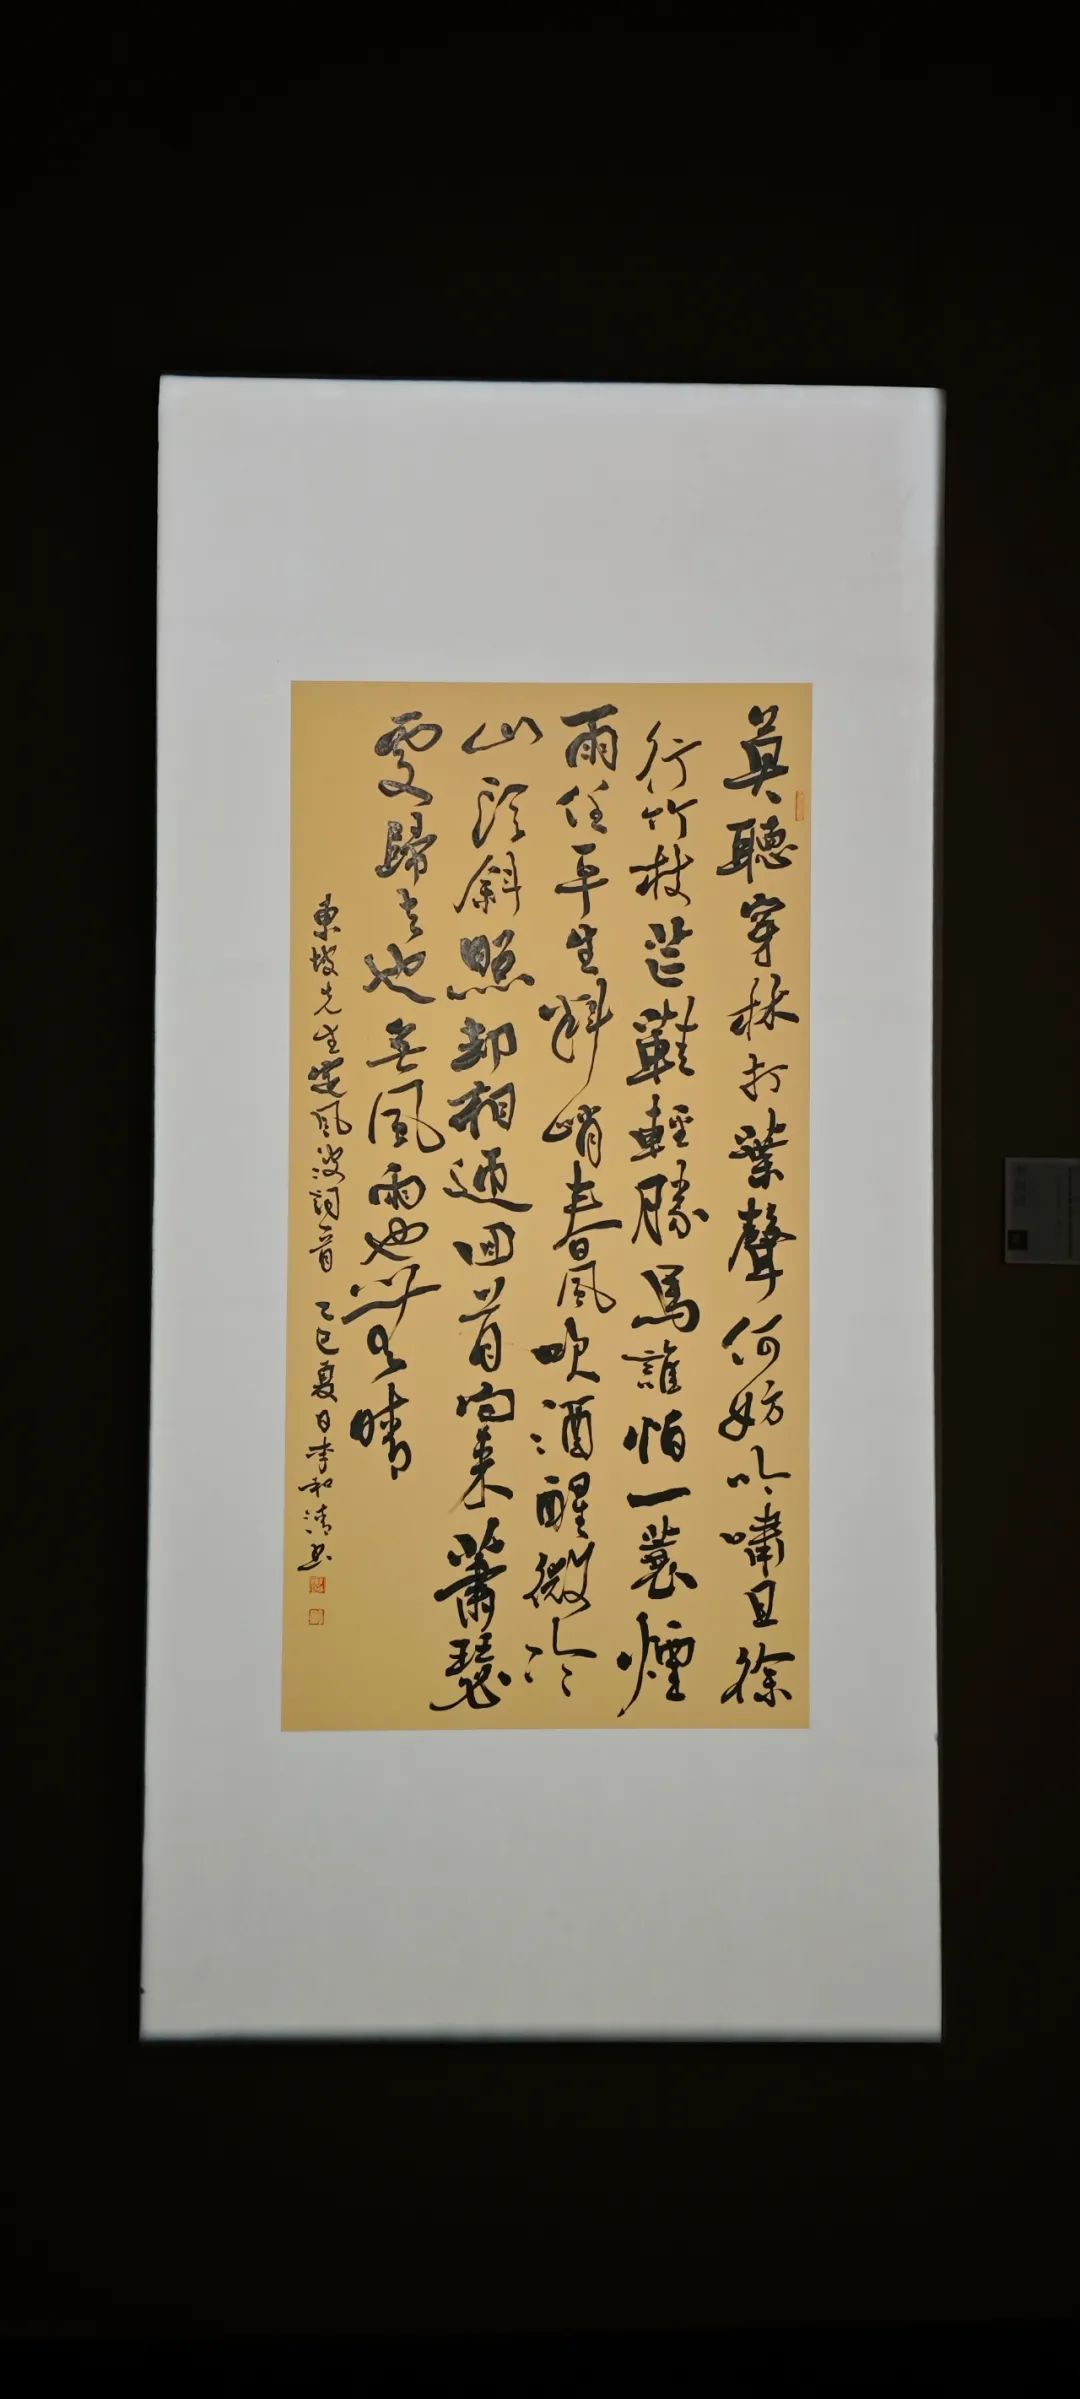 莫聽穿林打葉聲何妨吟嘯且徐
行竹杖芒鞋輕勝馬誰怕一蓑煙
雨任平生料峭春風吹酒醒微冷
山頭斜照却相迎回首向來蕭瑟
處歸去也無風雨也無晴
東坡先生定風波詞一首 乙巳夏日李和清書